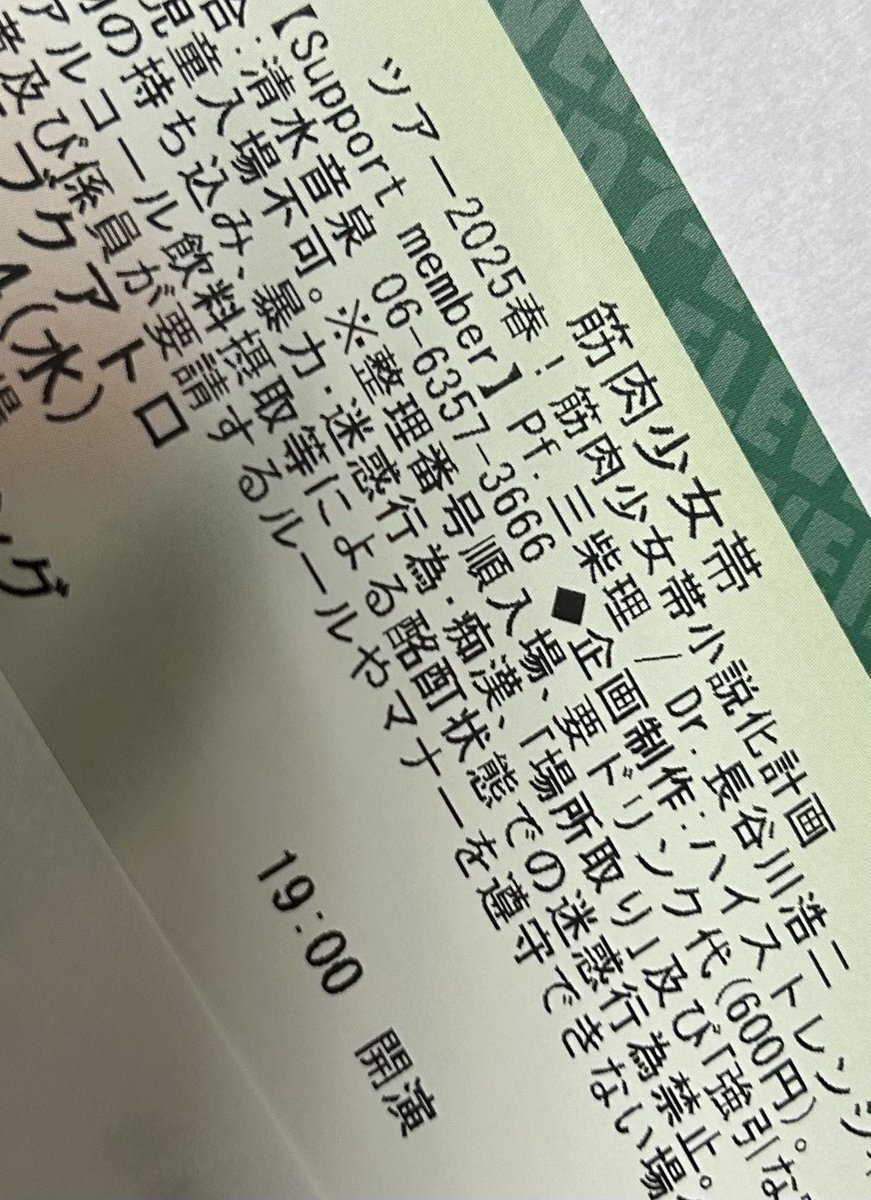 筋肉少女帯
ツアー2025春! 筋肉少女帯小説化計画
【Support member】 pf.三柴理 / Dr.長谷川浩二
合:清水音泉 06-6357-3666 ◆企画制作:ハイストレンジ
児童入場不可。※整理番号順入場、要ドリンク代(600円)。
の持ち込み、暴力・迷惑行為・痴漢、「場所取り」及び「強引な
アルコール飲料摂取等による酩酊状態での迷惑行為禁止。
者及び係員が要請するルールやマナーを遵守できない場
ブクアトロ
(水)
19:00 開演
グ